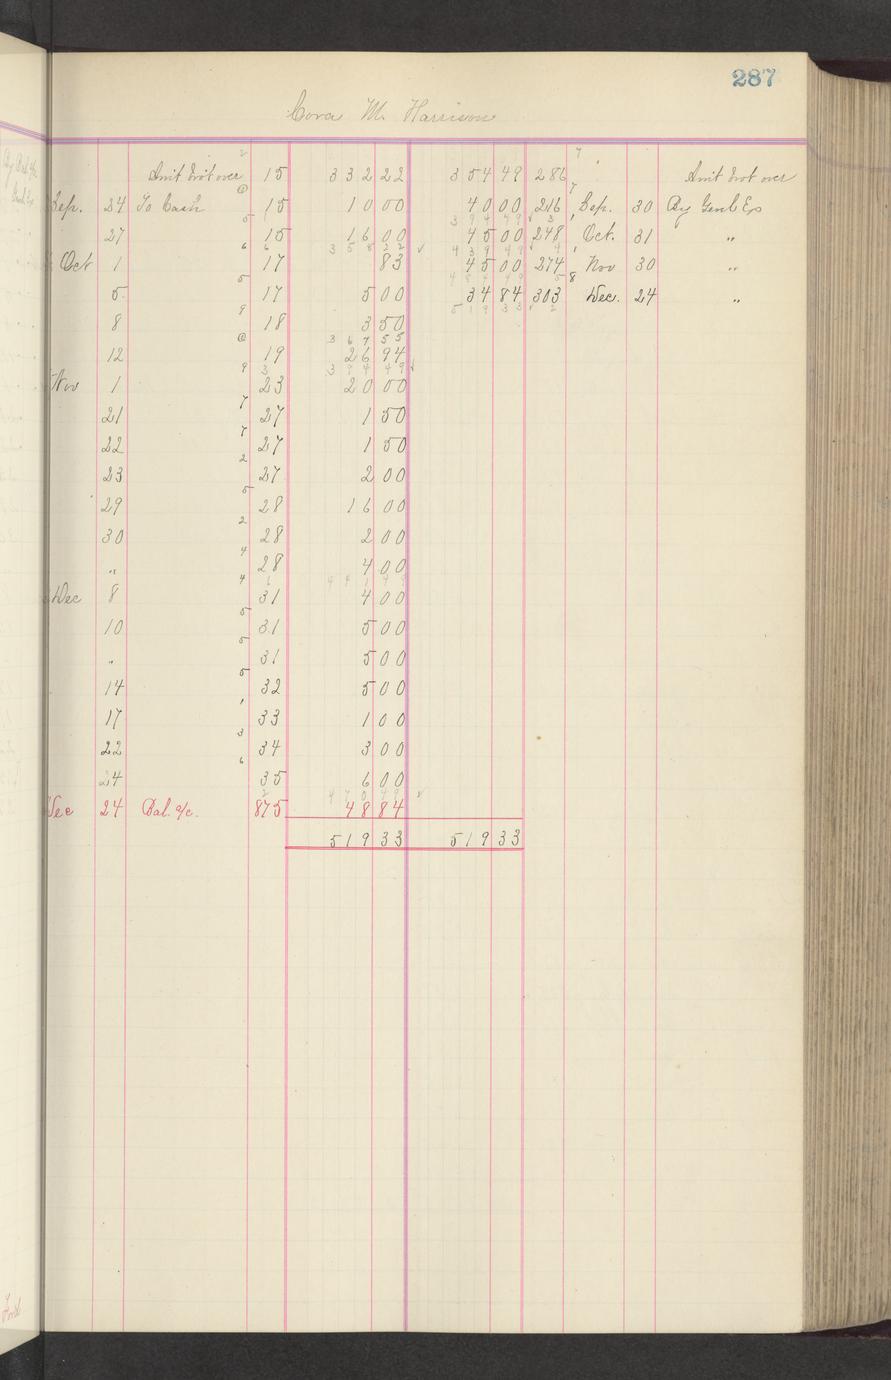 287
Cora M. Harrison
Am't bro't over 15 332 22 354 49 286 Am't bro't over
Sep. 24 To Cash 15 10 00 40 00 216 Sep. 30 By Genl Exp
27 15 16 00 45 00 248 Oct. 31 "
Oct 1 17 83 45 00 274 Nov 30 "
5 17 5 00 34 84 303 Dec. 24 "
8 18 3 50
367 55
12 19 26 94
394 49
Nov 1 23 20 00
21 27 1 50
22 27 1 50
23 27 2 00
29 28 16 00
30 28 2 00
" 28 4 00
441 49
Dec 8 31 4 00
10 31 5 00
" 31 5 00
14 32 5 00
17 33 1 00
22 34 3 00
24 35 6 00
470 49
Dec 24 Bal. a/c. 875 48 84
519 33 519 33